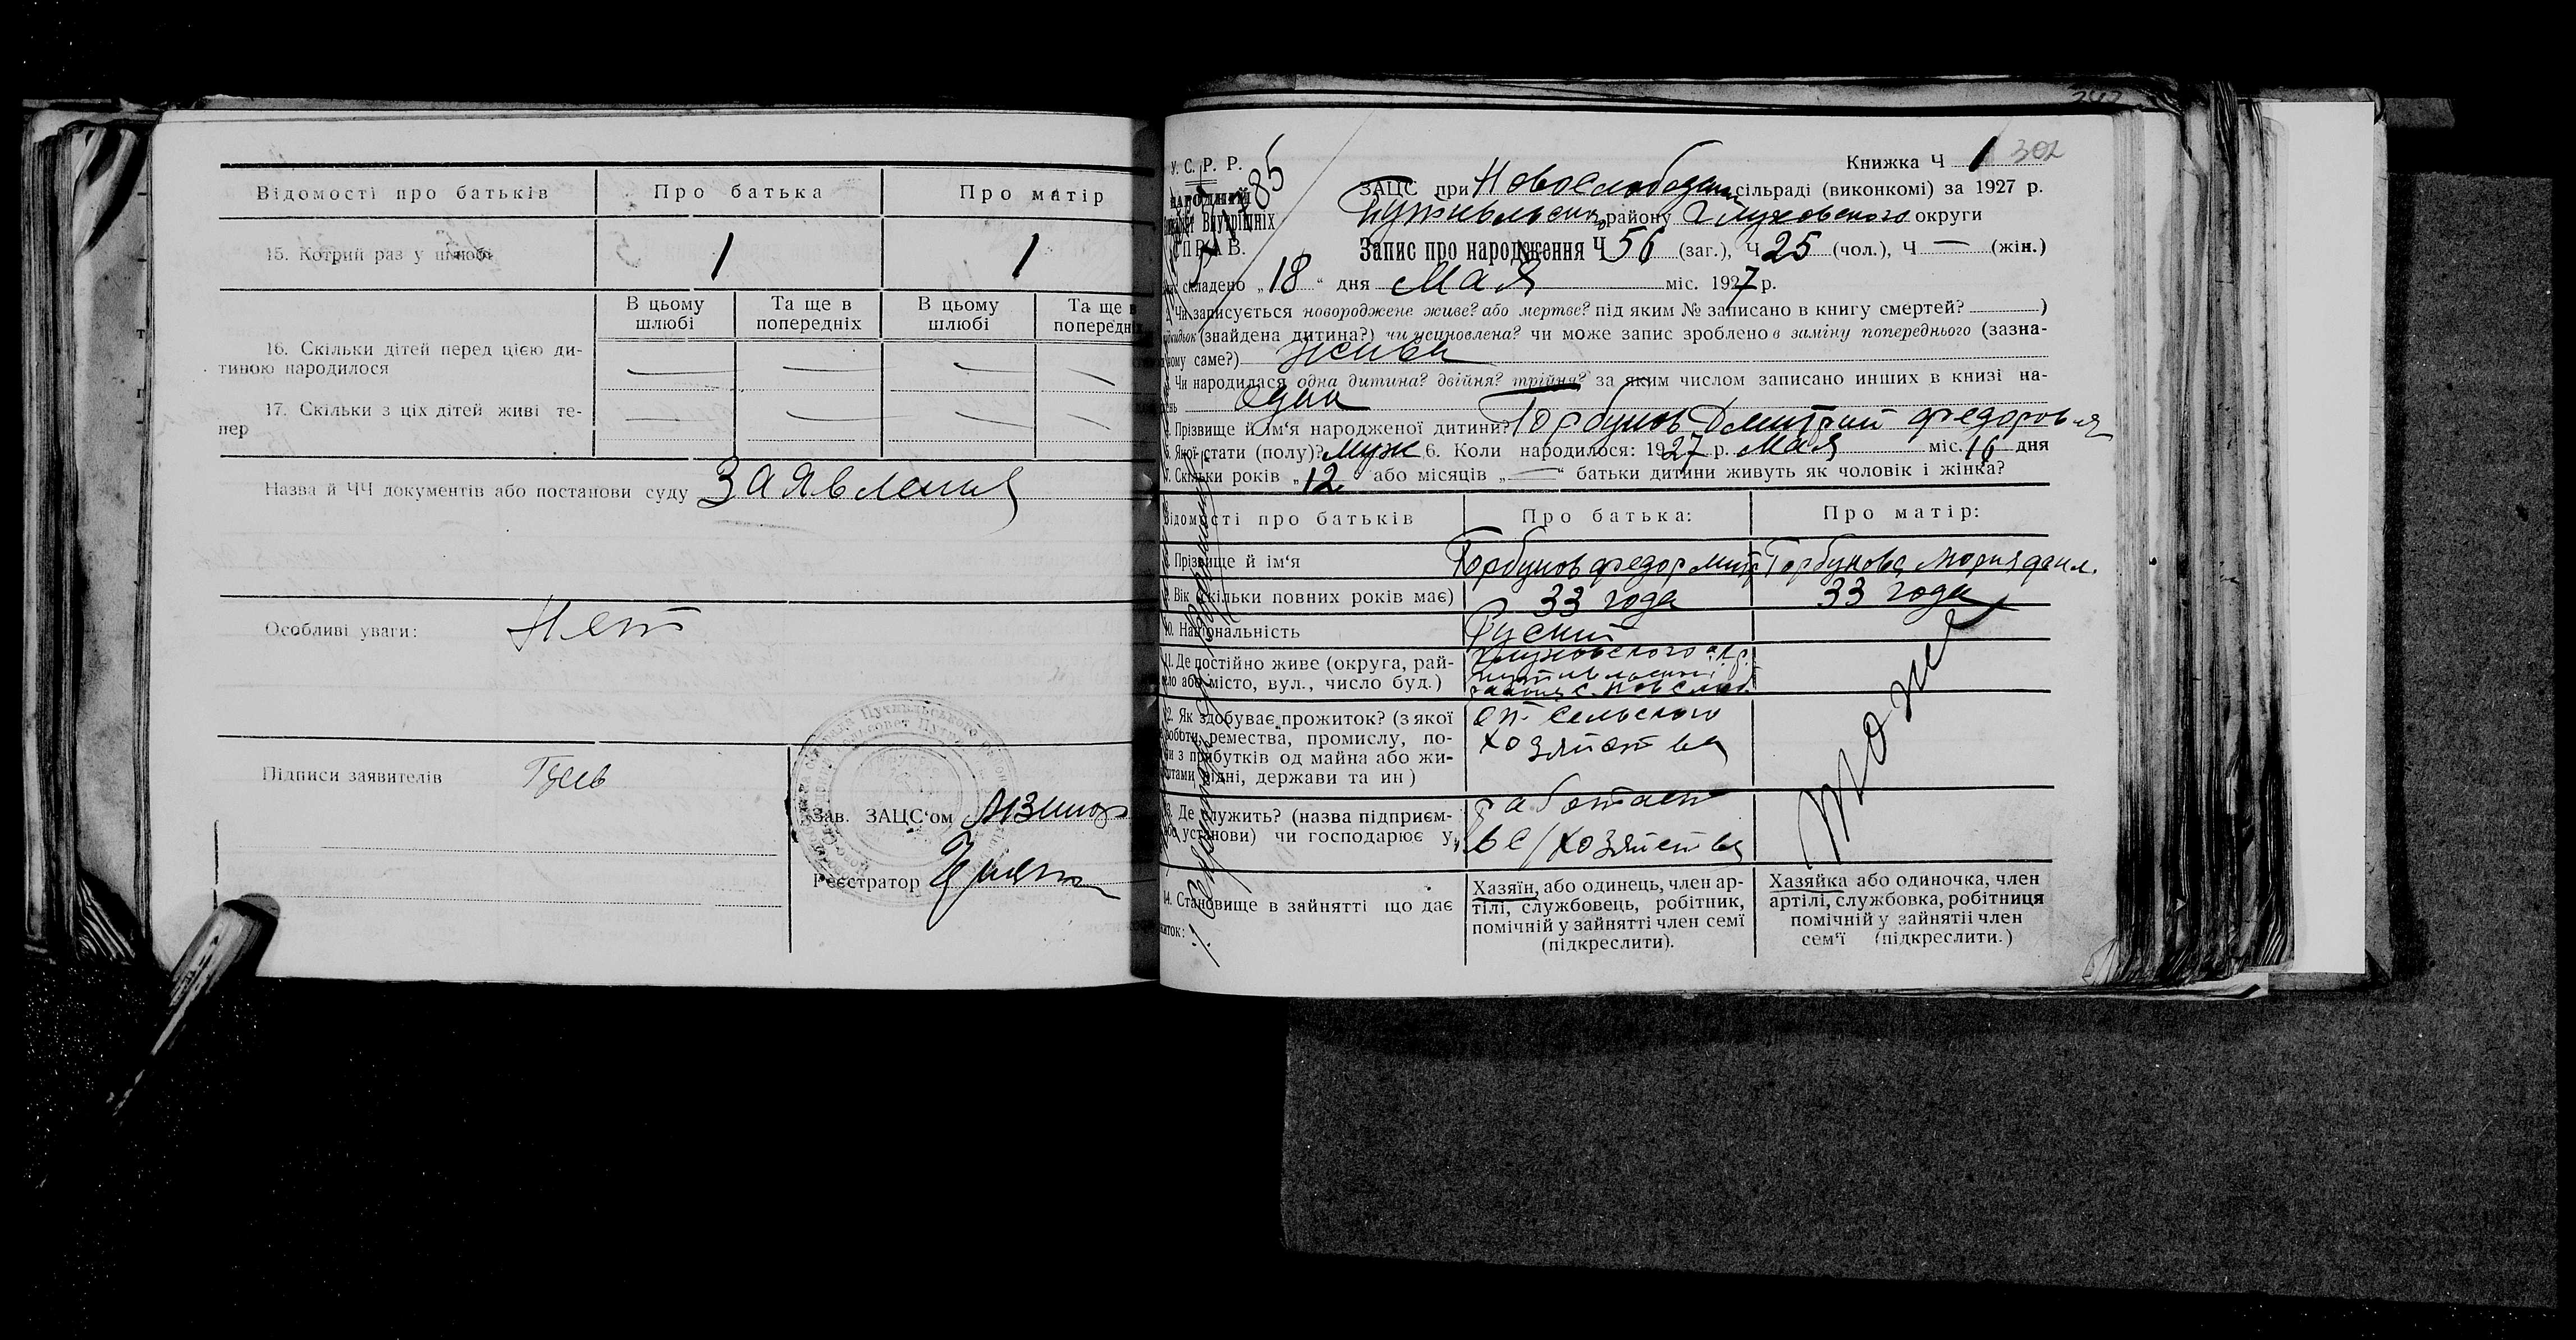 Відомості про батьків Про батька Про матір
15. Котрий раз у шлюбі 1 1
В цьому шлюбі Та ще в попередніх В цьому шлюбі Та ще в попередніх
16. Скільки дітей перед цією ди-
тиною народилося — — — —
17. Скільки з ціх дітей живі те-
пер — — — —
Назва й ЧЧ документів або постанови суду Заявления
Особливі уваги: Нет
Підписи заявителів
Зав. ЗАЦС'ом
Реєстратор
302
У. С. Р. Р.
НАРОДНИЙ
Внутрішніх
СПРАВ.
85
Книжка Ч 1 302
ЗАЦС при Новослободском сільраді (виконкомі) за 1927 р.
Путивльского району Глуховского округи
Запис про народження Ч 56 (заг.), Ч 25 (чол.), Ч — (жін.)
складено „18" дня Мая міс. 1927 р.
Чи записується новороджене живе? або мертве? під яким № записано в книгу смертей? )
(знайдена дитина?) чи усиновлена? чи може запис зроблено в заміну попереднього (зазна-
ному саме?) живой
Чи народилася одна дитина? двійня? трійня? за яким числом записано инших в книзі на-
одна
Прізвище й ім'я народженої дитини? Горбунов Дмитрий Федоров
5. Якої стати (полу)? Муж 6. Коли народилося: 1927 р. Мая міс. 16 дня
7. Скільки років „12" або місяців „—" батьки дитини живуть як чоловік і жінка?
Відомості про батьків Про батька: Про матір:
8. Прізвище й ім'я Горбунов Федор Мит Горбунова Мория Дани.
9. Вік (скільки повних років має) 33 года 33 года
10. Національність Руский
11. Де постійно живе (округа, рай-
село або місто, вул., число буд.) Глуховского окр.
Тоже
12. Як здобуває прожиток? (з якої
роботи, ремества, промислу, по-
ди з прибутків од майна або жи-
рідні, держави та ин) от сельского
хозяйства
13. Де служить? (назва підприєм-
або установи) чи господарює у, работает
в с/хозяйства
14. Становище в зайнятті що дає
житок:
Хазяїн, або одинець, член ар-
тілі, службовець, робітник,
помічній у зайнятті член семї
(підкреслити).
Хазяйка або одиночка, член
артілі, службовка, робітниця
помічній у зайнятії член
сем'ї (підкреслити.)